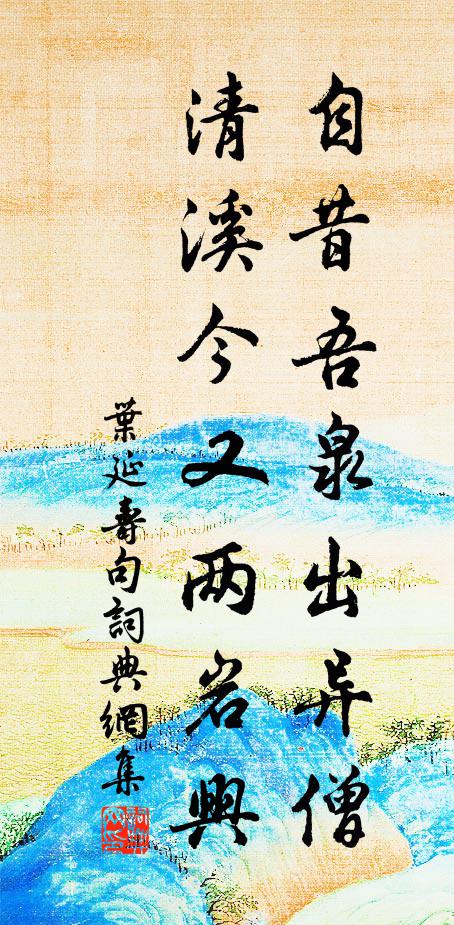 自昔吾泉出异僧
清溪今又两岩興
葉延壽句詞典網集